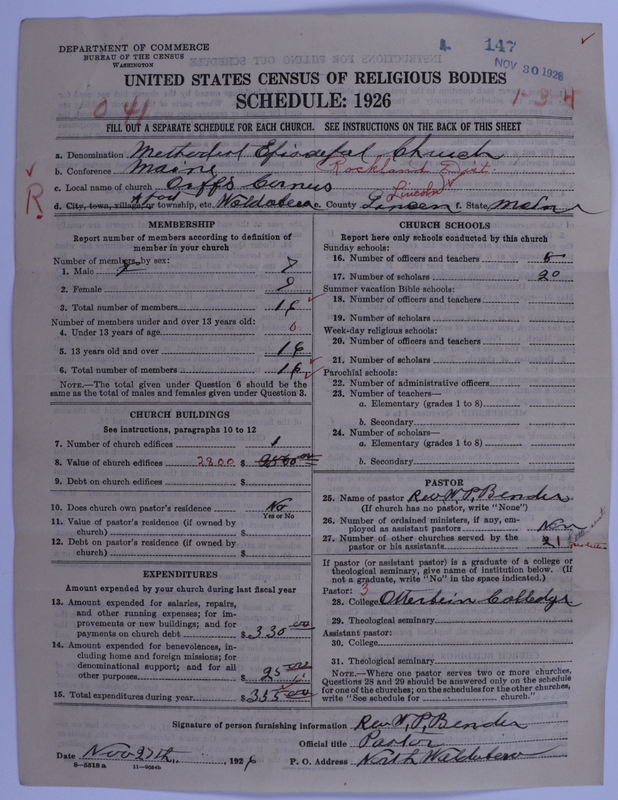 DEPARTMENT OF COMMERCE
BUREAU OF THE CENSUS
WASHINGTON
147
NOV 30 1926
UNITED STATES CENSUS OF RELIGIOUS BODIES
SCHEDULE: 1926
0 41
1-3-4
FILL OUT A SEPARATE SCHEDULE FOR EACH CHURCH. SEE INSTRUCTIONS ON THE BACK OF THIS SHEET
a. Denomination Methodist Episcopal Church
b. Conference Maine Rockland Dist.
c. Local name of church Orff's Cornus
R. d. City, town, village, or township, etc. Waldoboro e. County Lincoln f. State Maine
MEMBERSHIP
Report number of members according to definition of
member in your church
Number of members by sex:
1. Male 7
2. Female 9
3. Total number of members 16
Number of members under and over 13 years old:
4. Under 13 years of age 0
5. 13 years old and over 16
6. Total number of members 16
NOTE.—The total given under Question 6 should be the
same as the total of males and females given under Question 3.
CHURCH BUILDINGS
See instructions, paragraphs 10 to 12
7. Number of church edifices 1
8. Value of church edifices 2800 $
9. Debt on church edifices $
10. Does church own pastor's residence No
Yes or No
11. Value of pastor's residence (if owned by
church) $
12. Debt on pastor's residence (if owned by
church) $
EXPENDITURES
Amount expended by your church during last fiscal year
13. Amount expended for salaries, repairs,
and other running expenses; for im-
provements or new buildings; and for
payments on church debt $ 330 00
14. Amount expended for benevolences, in-
cluding home and foreign missions; for
denominational support; and for all
other purposes $ 25
15. Total expenditures during year $ 355 00
CHURCH SCHOOLS
Report here only schools conducted by this church
Sunday schools:
16. Number of officers and teachers
17. Number of scholars 20
Summer vacation Bible schools:
18. Number of officers and teachers
19. Number of scholars
Week-day religious schools:
20. Number of officers and teachers
21. Number of scholars
Parochial schools:
22. Number of administrative officers
23. Number of teachers—
a. Elementary (grades 1 to 8)
b. Secondary
24. Number of scholars—
a. Elementary (grades 1 to 8)
b. Secondary
PASTOR
25. Name of pastor Rev. W. P. Bender
(If church has no pastor, write "None")
26. Number of ordained ministers, if any, em-
ployed as assistant pastors Non
27. Number of other churches served by the
pastor or his assistants 1
If pastor (or assistant pastor) is a graduate of a college or
theological seminary, give name of institution below. (If
not a graduate, write "No" in the space indicated.)
Pastor: 3
28. College Otterbein Colledge
29. Theological seminary
Assistant pastor:
30. College
31. Theological seminary
NOTE.—Where one pastor serves two or more churches,
Questions 28 and 29 should be answered only on the schedule
for one of the churches; on the schedules for the other churches,
write "See schedule for church."
Signature of person furnishing information Rev. W. P. Bender
Official title Pastor
Date Nov 27th, 1926 P. O. Address North Waldoboro
8—5518 a 11—9054b